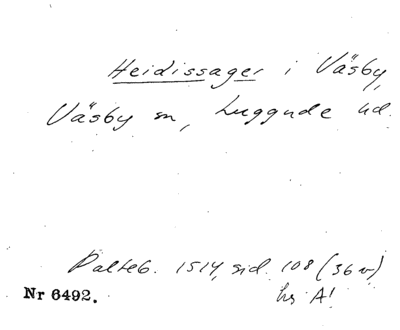 Heidissager i Väsby,
Väsby sn, Luggude hd.
Palteb. 1514, sid. 108 (36 v)
Nr 6492.
hs A!